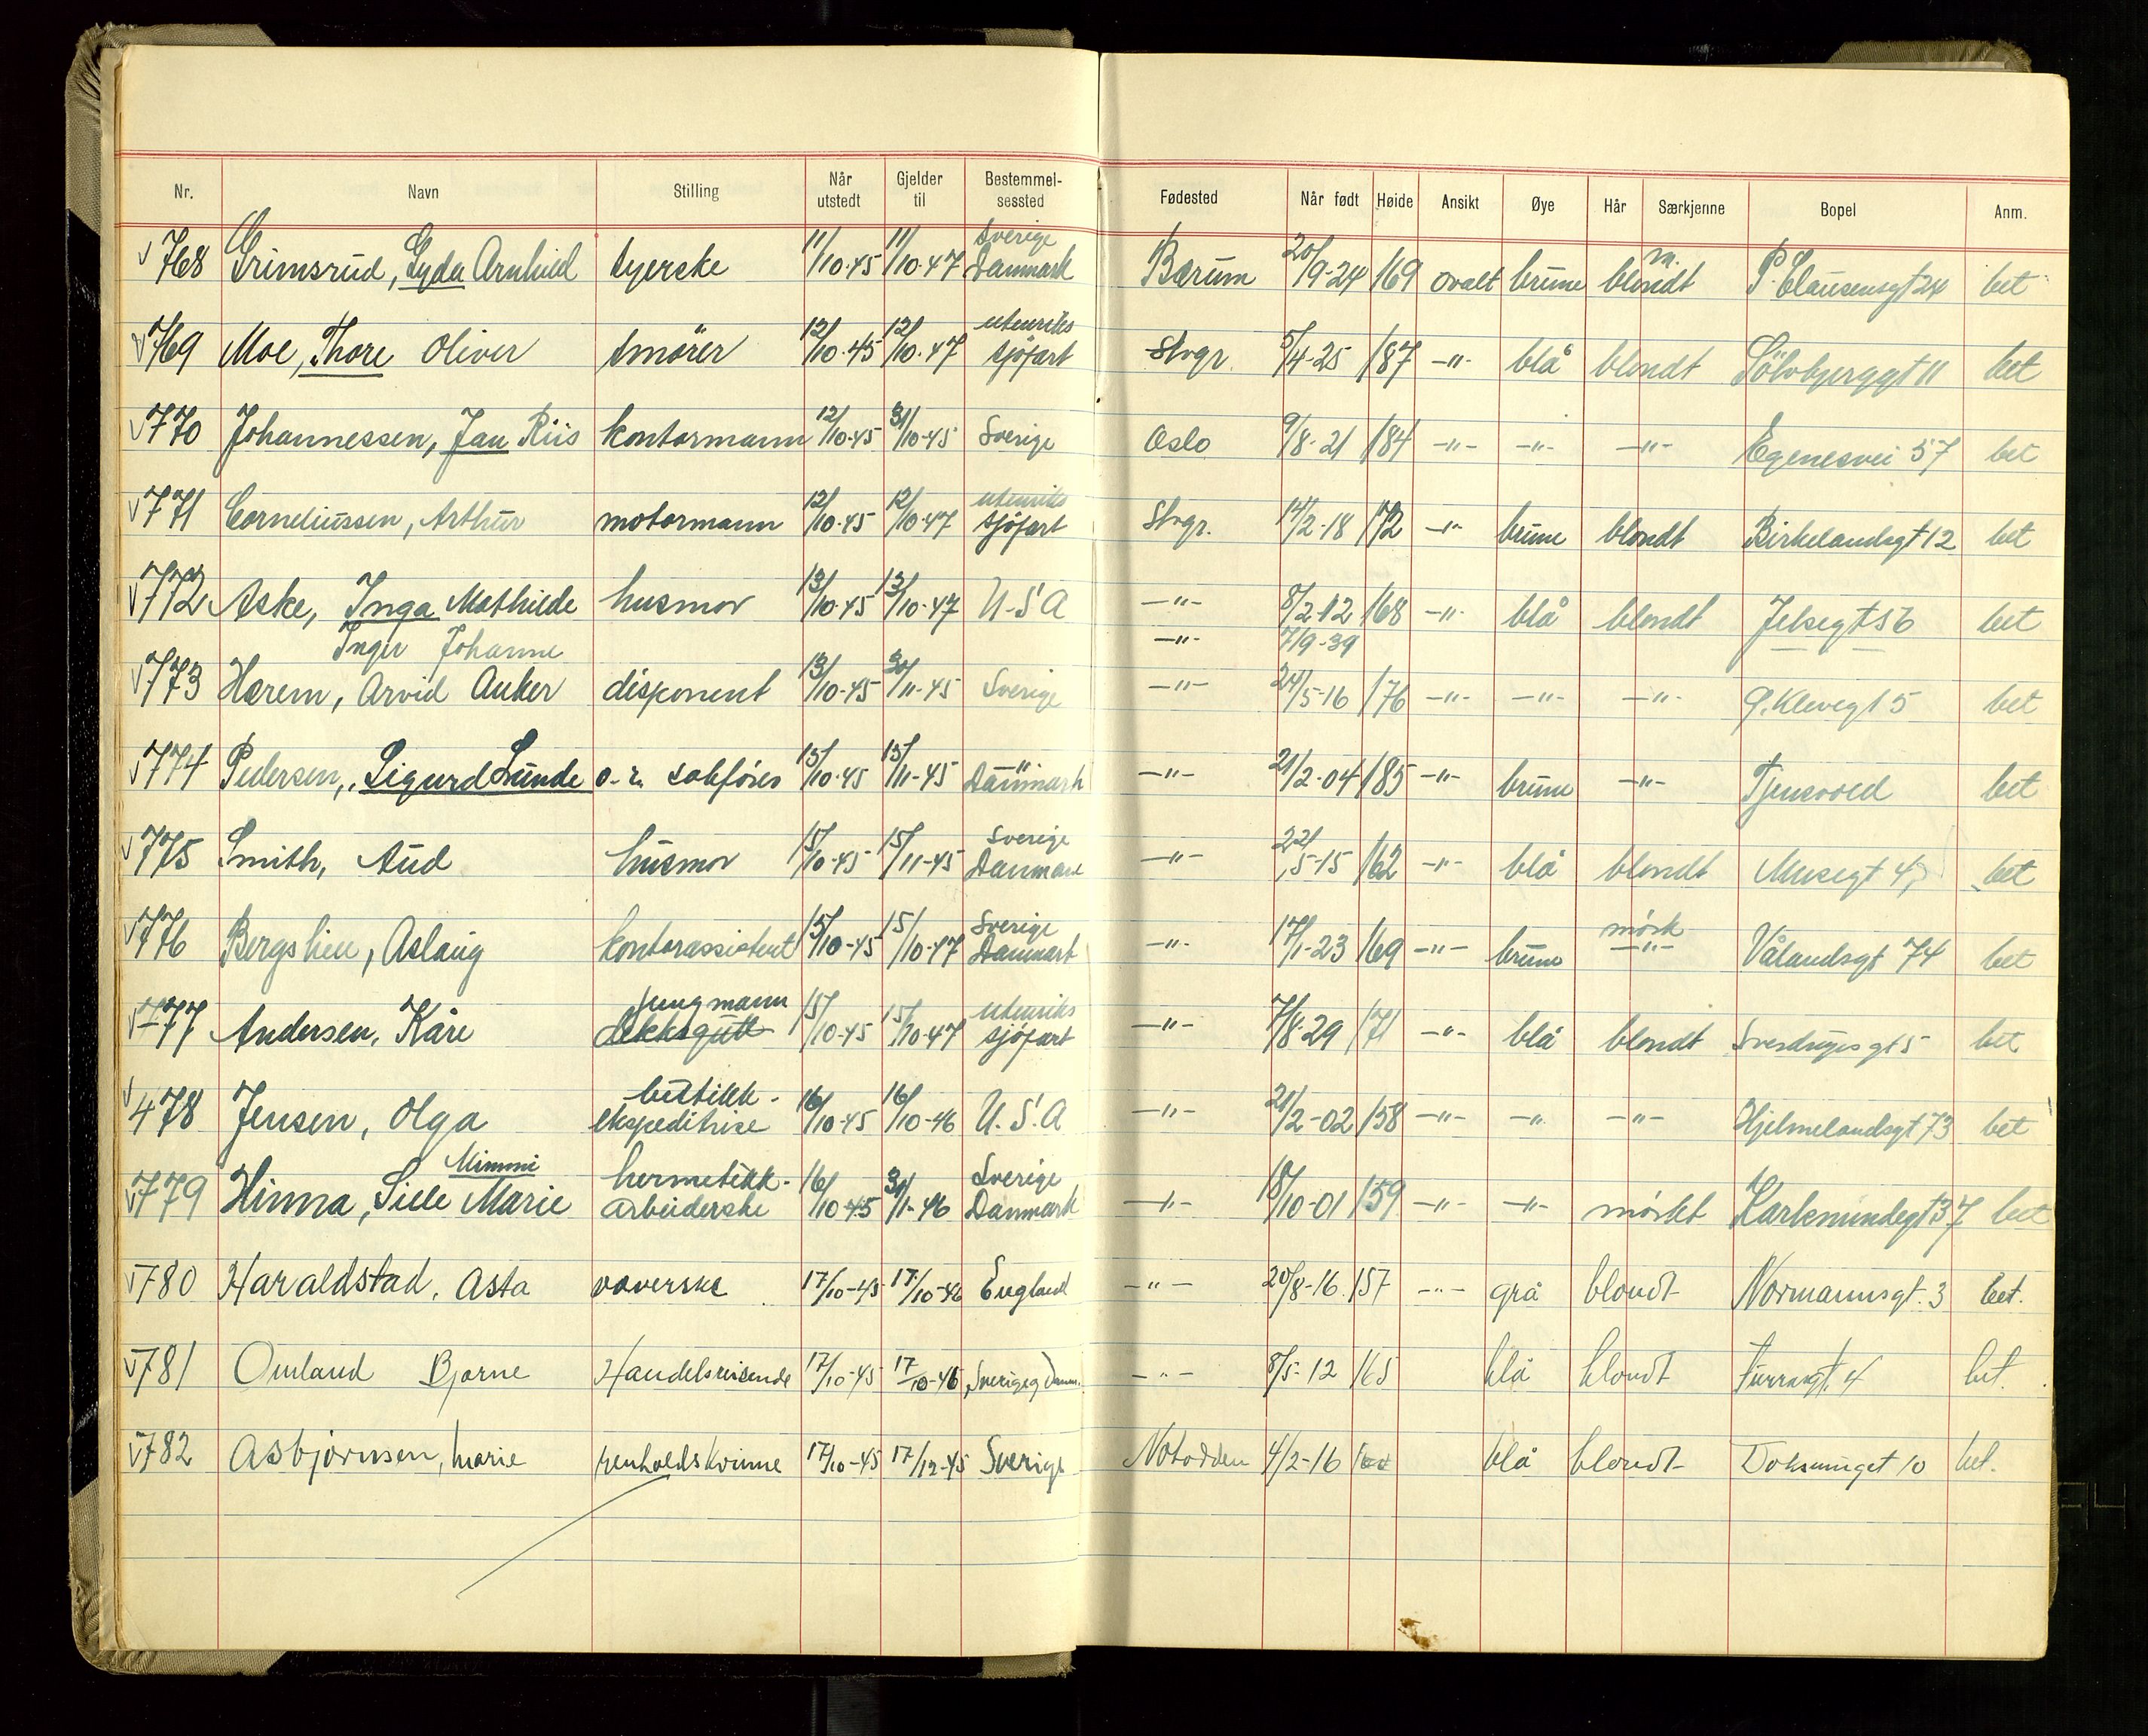 Nr. Navn Stilling Når utstedt Gjelder til Bestemmel-sessted Fødested Når født Høide Ansikt Øye Hår Særkjenne Bopel Anm.
√ 768 Grimsrud, Lyda Arnhild syerske 11/10-45 11/10-47 Sverige Danmark Bærum 20/9-24 169 ovalt brune m. blondt P. Clausensgt 24 bet
√ 769 Moe, Thore Oliver smörer 12/10-45 12/10-47 utenriks sjöfart Stvgr. 5/4-25 187 -"- blå blondt Sölvbjerggt 11 bet
√ 770 Johannessen, Jan Riis kontormann 12/10-45 31/10-45 Sverige Oslo 9/8-21 184 -"- -"- -"- Egenesvei 57 bet
√ 771 Corneliussen, Arthur motormann 12/10-45 12/10-47 utenriks sjöfart Stvgr. 14/2-18 172 -"- brune blondt Birkelandsgt 12 bet
√ 772 Aske, Inga Mathilde husmor 13/10-45 13/10-47 U.S.A -"- 8/2-12 168 -"- blå blondt Jelsegt 56 bet
Inger Johanne -"- 7/9-39
√ 773 Hærem, Arvid Anker disponent 13/10-45 30/11-45 Sverige -"- 24/5-16 176 -"- -"- -"- 5 bet
√ 774 Pedersen, Sigurd Lunde o.r. sakförer 15/10-45 15/11-45 -"- Danmark -"- 21/2-04 185 -"- brune -"- Tjensvold bet
√ 775 Smith, Aud husmor 15/10-45 15/11-45 Sverige Danmark -"- 22/5-15 162 -"- blå blondt Musegt 4 bet
√ 776 Bergslien, Aslaug kontorassistent 15/10-45 15/10-47 Sverige Danmark -"- 17/1-23 169 -"- brune mörk -"- Vålandsgt 74 bet
√ 777 Andersen, Kåre jungmann dekksgutt 15/10-45 15/10-47 utenriks sjöfart -"- 7/8-29 171 -"- blå blondt Sverdrupsgt 5 bet
√ 478 Jensen, Olga butikk-ekspeditrise 16/10-45 16/10-46 U.S.A -"- 21/2-02 158 -"- -"- -"- Hjelmelandsgt 73 bet
√ 779 Hinna, Sille Mimmi Marie hermetikk-arbeiderske 16/10-45 31/1-46 Sverige Danmark -"- 18/10-01 159 -"- -"- mörkt Karlsmindegt 37 bet
√ 780 Haraldstad, Asta væverske 17/10-45 17/10-46 England -"- 20/8-16 157 -"- grå blondt Normannsgt. 3 bet.
√ 781 Omland Bjarne Handelsreisende 17/10-45 17/10-46 Sverige og Danm. -"- 8/5-12 165 blå blondt Furrasgt. 4 bet.
√ 782 Asbjörnsen, Marie renholdskvinne 17/10-45 17/12-45 Sverige Notodden 4/2-16 blå blondt 10 bet.